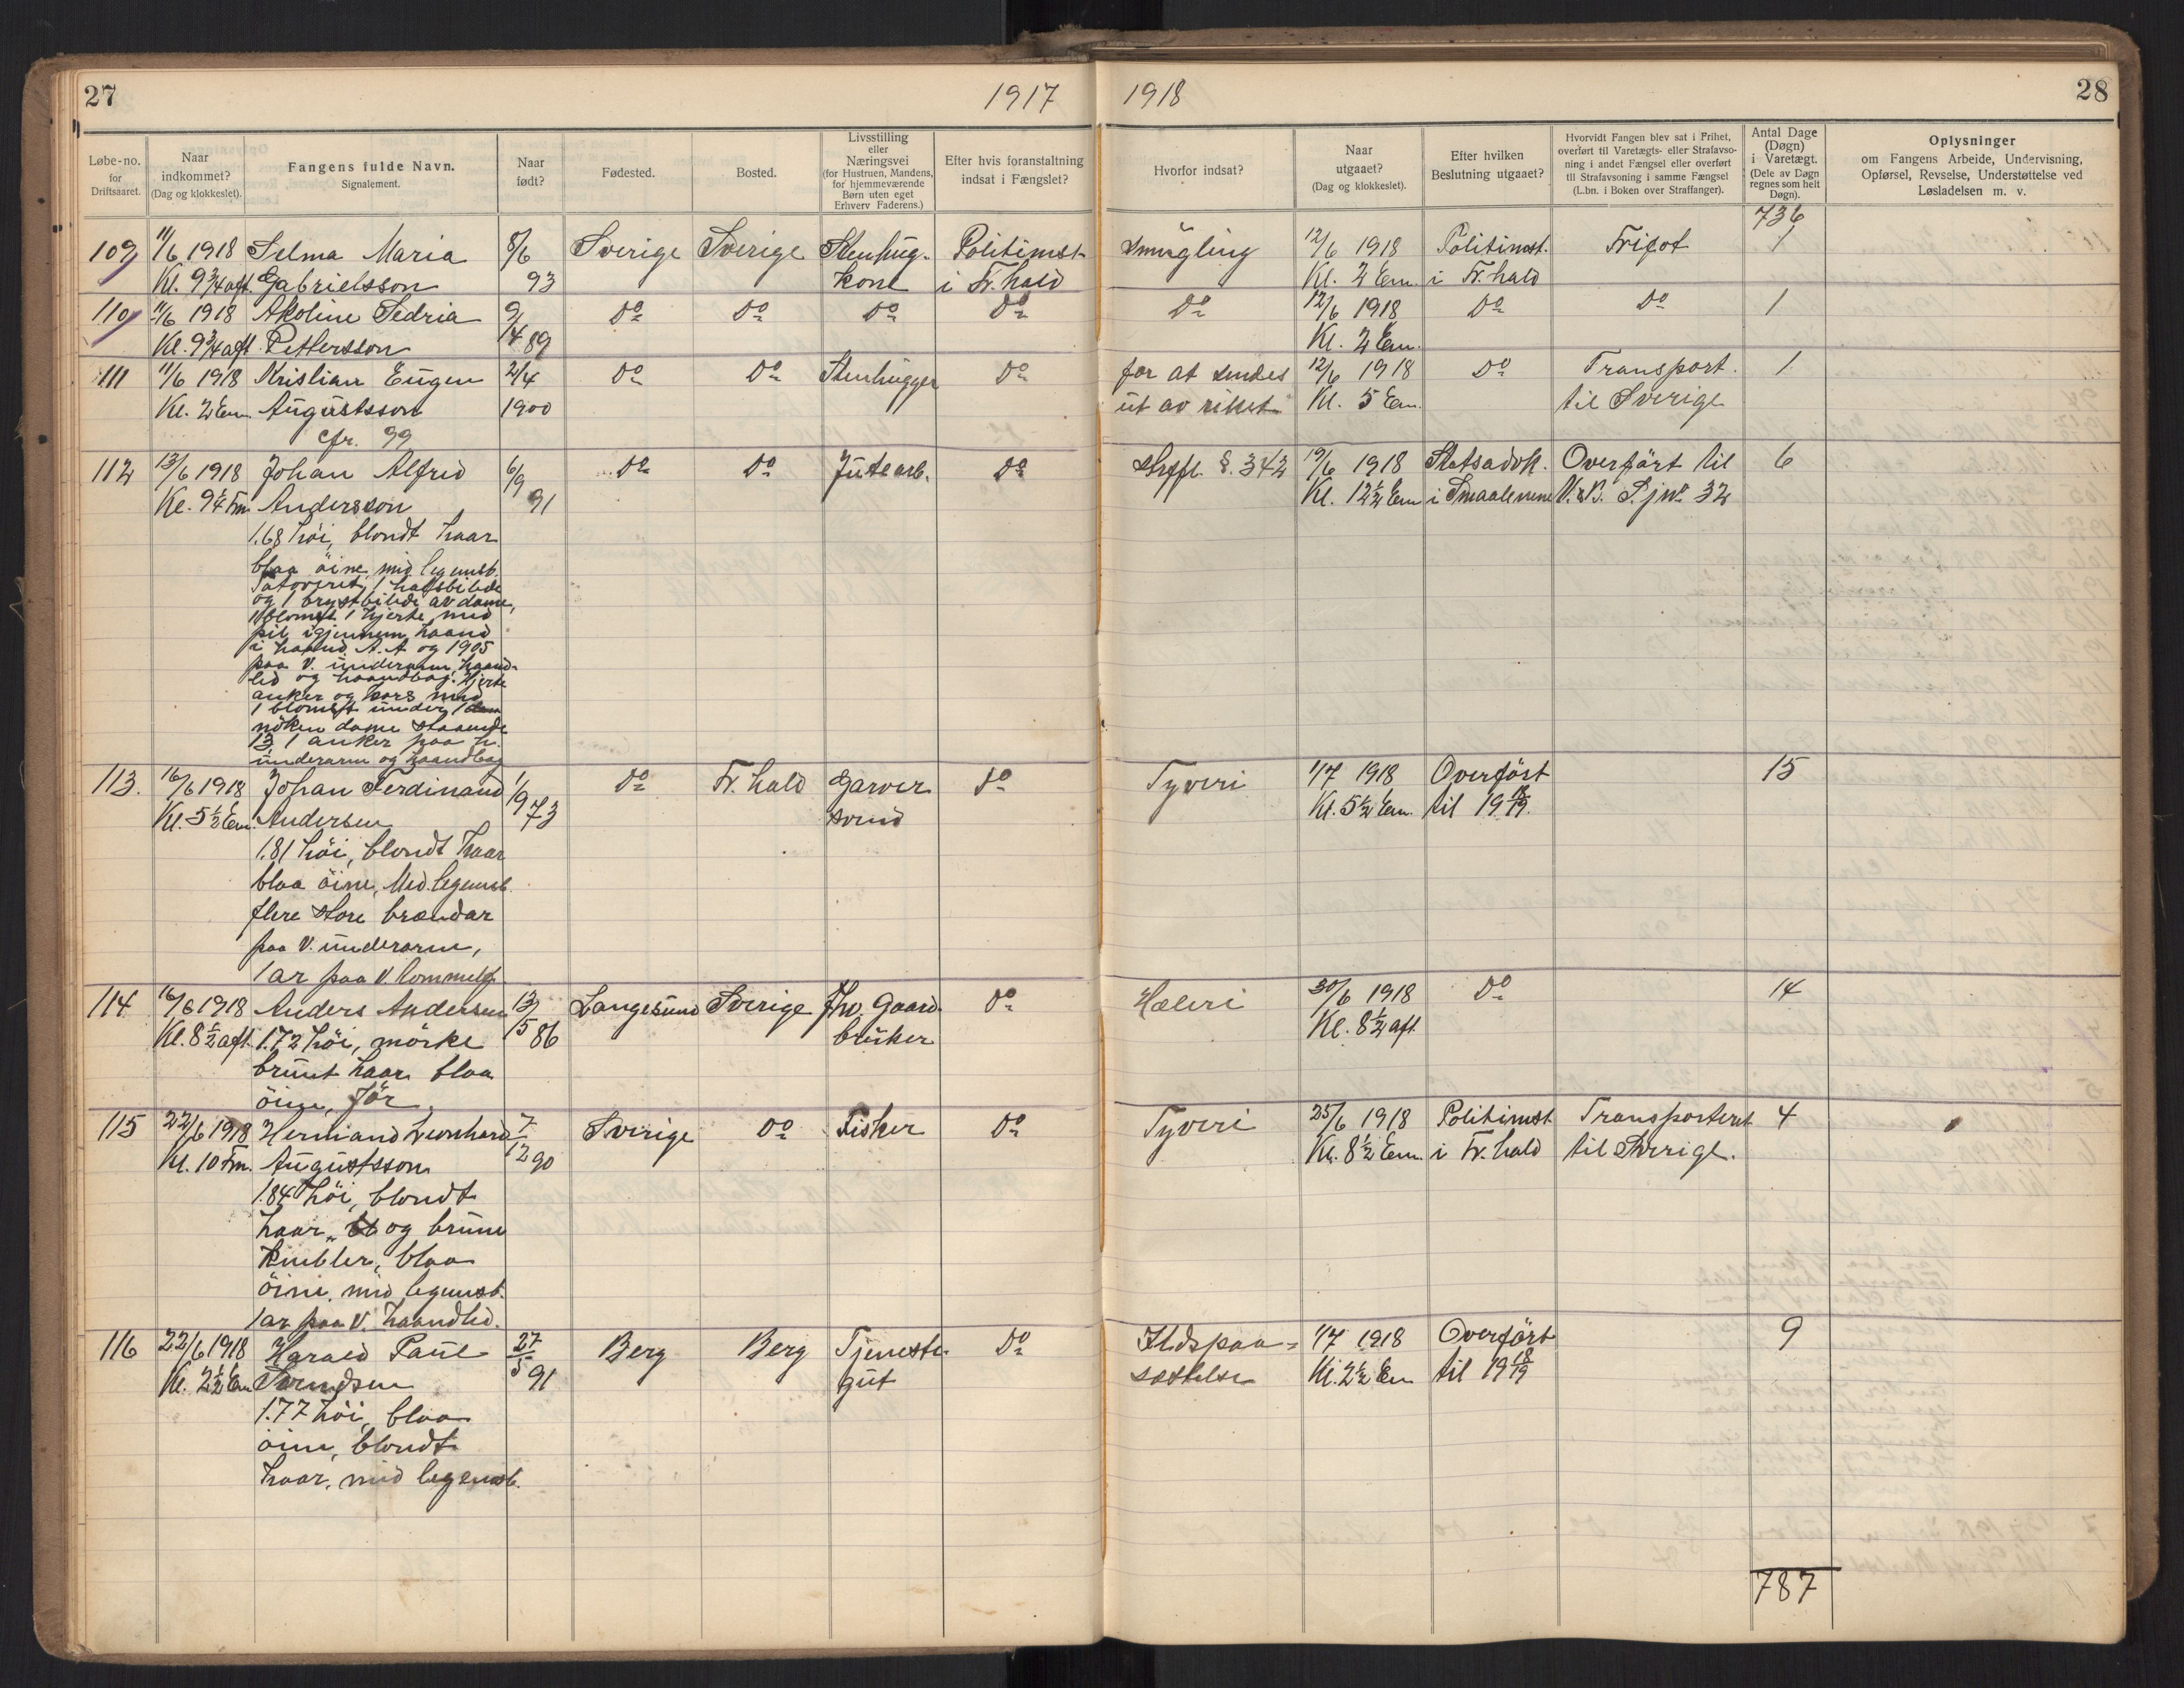 27
1917
1918
28
Løbe-no. for Driftsaaret.
Naar indkommet? (Dag og klokkeslet).
Fangens fulde Navn. Signalement.
Naar født?
Fødested.
Bosted.
Livsstilling eller Næringsvei (for Hustruen, Mandens, for hjemmeværende Børn uten eget Erhverv Faderens.)
Efter hvis foranstaltning indsat i Fængslet?
Hvorfor indsat?
Naar utgaaet? (Dag og klokkeslet).
Efter hvilken Beslutning utgaaet?
Hvorvidt Fangen blev sat i Frihet, overført til Varetægts- eller Strafavsoning i andet Fængsel eller overført til Strafavsoning i samme Fængsel (L.bn. i Boken over Straffanger).
Antal Dage (Døgn) i Varetægt. (Dele av Døgn regnes som helt Døgn).
Oplysninger om Fangens Arbeide, Undervisning, Opførsel, Revselse, Understøttelse ved Løsladelsen m. v.
736
109 11/6 1918 Selma Maria 8/6 Sverige Sverige Stenhug- Politimst. Smugling 12/6 1918 Politimst. Frigot 1
Kl. 9 3/4 aft. Gabrielsson 93 kone i Fr.hald Kl. 2 Em. i Fr.hald
110 11/6 1918 Akoline Sedria 9/14 Do Do Do Do Do 12/6 1918 Do Do 1
Kl. 9 3/4 aft. Pettersson 89 Kl. 2 Em.
111 11/6 1918 Kristian Eugen 21/4 Do Do Stenhugger Do for at sendes 12/6 1918 Do Transport. 1
Kl. 2 Em. Augustsson 1900 ut av riket Kl. 5 Em. til Sverige
cfr. 99
112 13/6 1918 Johan Alfred 6/9 Do Do Jutearb. Do Strfl. §. 342 19/6 1918 Statsadvk. Overført til 6
Kl. 9 1/4 Fm. Andersson 91 Kl. 12 1/2 Em i Smaalenene V. & B. S. jnr 32
1.68 høi, blondt haar
blaa øine, mid. legemsb.
Tatoveret, 1 halsbilede
og 1 brystbilede av dame,
1 blomst 1 hjerte med
pil igjennem, haand
i haand A. A og 1905
paa v. underarm, haand-
led og haandbag. Hjerte
anker og kors med
1 blomst under, 1
nøken dame staaende
13, 1 anker paa h.
underarm og haandbag
113. 16/6 1918 Johan Ferdinand 1/9 Do Fr.hald Garver Do Tyveri 1/7 1918 Overført 15
Kl. 5 1/2 Em. Andersen 73 svend Kl. 5 1/2 Em. til 19 18/19.
1.81 høi, blondt haar
blaa øine, Mid. legemsb.
flere store brændar
paa v. underarm,
1 ar paa v. tommelf.
114 16/6 1918 Anders Andersen 13/5 Langesund Sverige Fhv. Gaard- Do Hæleri 30/6 1918 Do 14
Kl. 8 1/2 aft. 1.72 høi, mørke 86 bruker Kl. 8 1/2 aft.
brunt haar blaa
øine, før
115 22/6 1918 Hermand Leonhard 7/12 Sverige Do Fisker Do Tyveri 25/6 1918 Politimst. Transporteret 4
Kl. 10 Fm. Augustsson 90 Kl. 8 1/2 Em. i Fr.hald til Sverige.
1.84 høi, blondt
haar, og brune
Knebler, blaa
øine, mid legemsb.
1 ar paa v. haandled.
116 22/6 1918 Harald Paul 27/5 Berg Berg Tjeneste- Do Ildspaa- 1/7 1918 Overført 9
Kl. 2 1/2 Em Svendsen 91 gut sættelse Kl. 2 1/2 Em til 19 18/19
1.77 høi, blaa
øine, blondt
haar, mid legemsb.
787